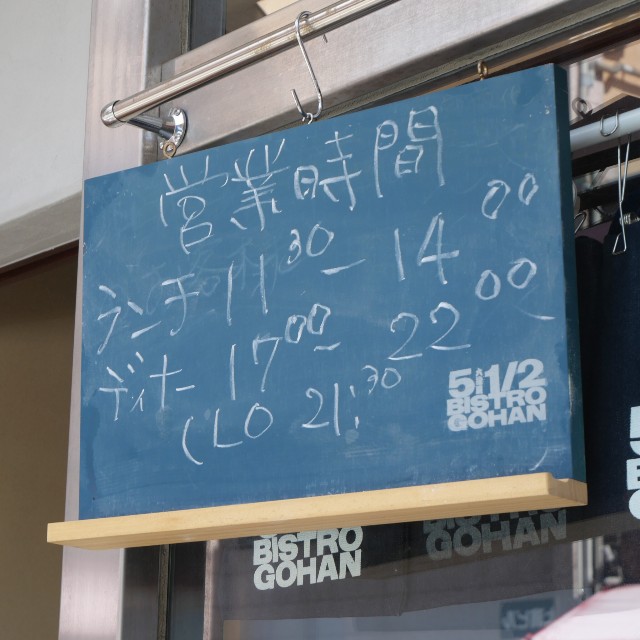 営業時間
ランチ 11:30 - 14:00
ディナー 17:00 - 22:00
(LO 21:30
5 1/2
BISTRO
GOHAN
BISTRO
GOHAN
BISTRO
GOHAN